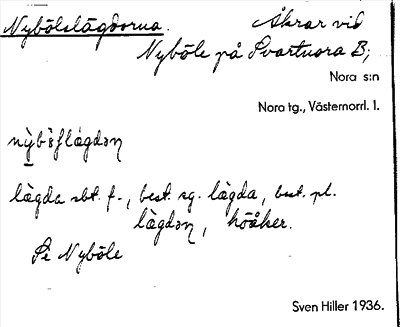 Nybölslägdorna. Åkrar vid
Nyböle på Svartnora B;
Nora s:n
Nora tg., Västernorrl. l.
nỳbö̀flàgdən
làgda sbt. f., best. sg. làgda, best. pl.
làgdən, höåker.
Se Nyböle
Sven Hiller 1936.